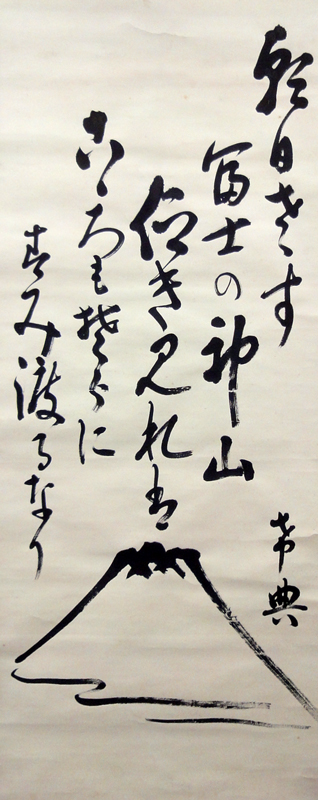 朝日さす
富士の神山
仰き見れは
こゝろも楚らに
すみ渡るなり
希典